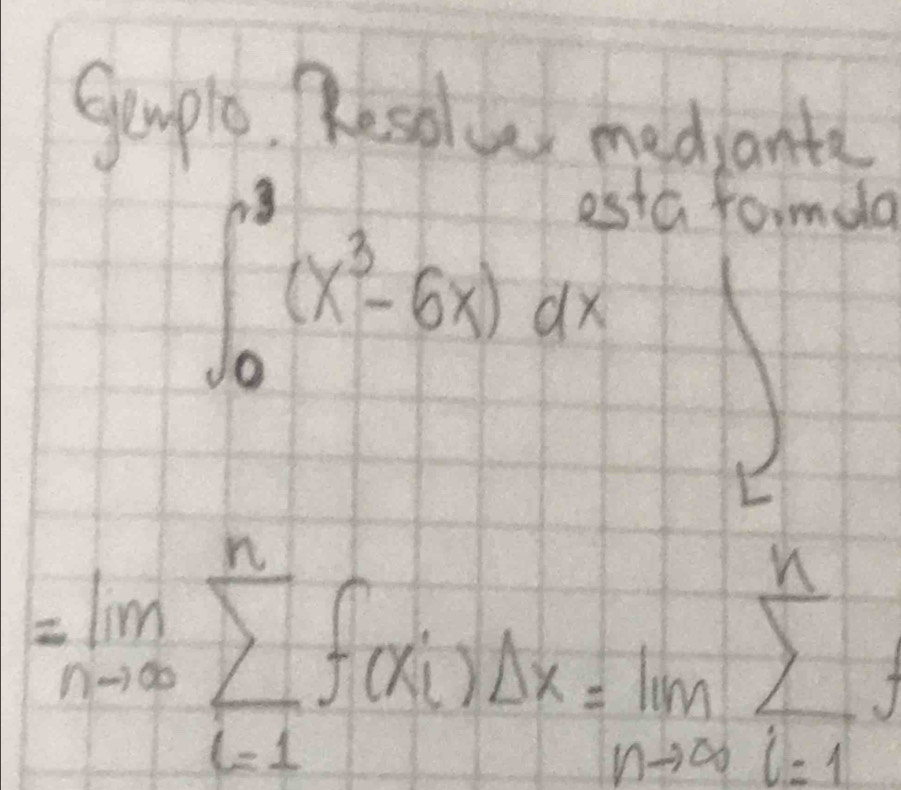 Ejemplo. Resolver mediante
esta formula
∫₀³ (x³ - 6x) dx
= lim n→∞ Σ i=1 n f(xi) Δx = lim n→∞ Σ i=1 n f